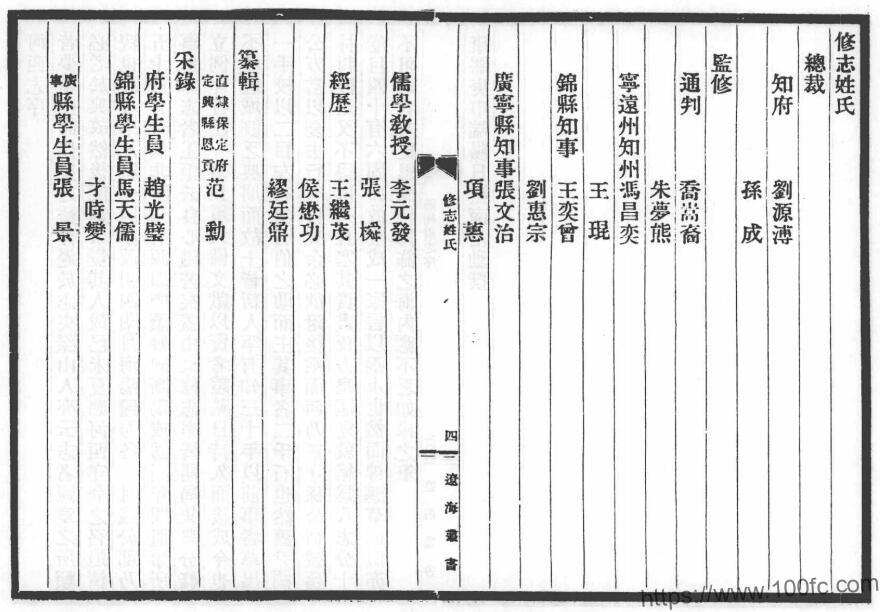 修志姓氏
總裁
知府　劉源溥
孫成
監修
通判　喬嵩裔
朱夢熊
寧遠州知州馮昌奕
王琨
錦縣知事　王奕曾
劉惠宗
廣寧縣知事張文治
項蕙
修志姓氏　四　遼海叢書
儒學教授　李元發
張橓
經歷　王繼茂
侯懋功
繆廷鼐
纂輯
直隸保定府定興縣恩貢范勳
采錄
府學生員　趙光璧
錦縣學生員馬天儒
才時變
廣寧縣學生員張景
https://www.100fc.com